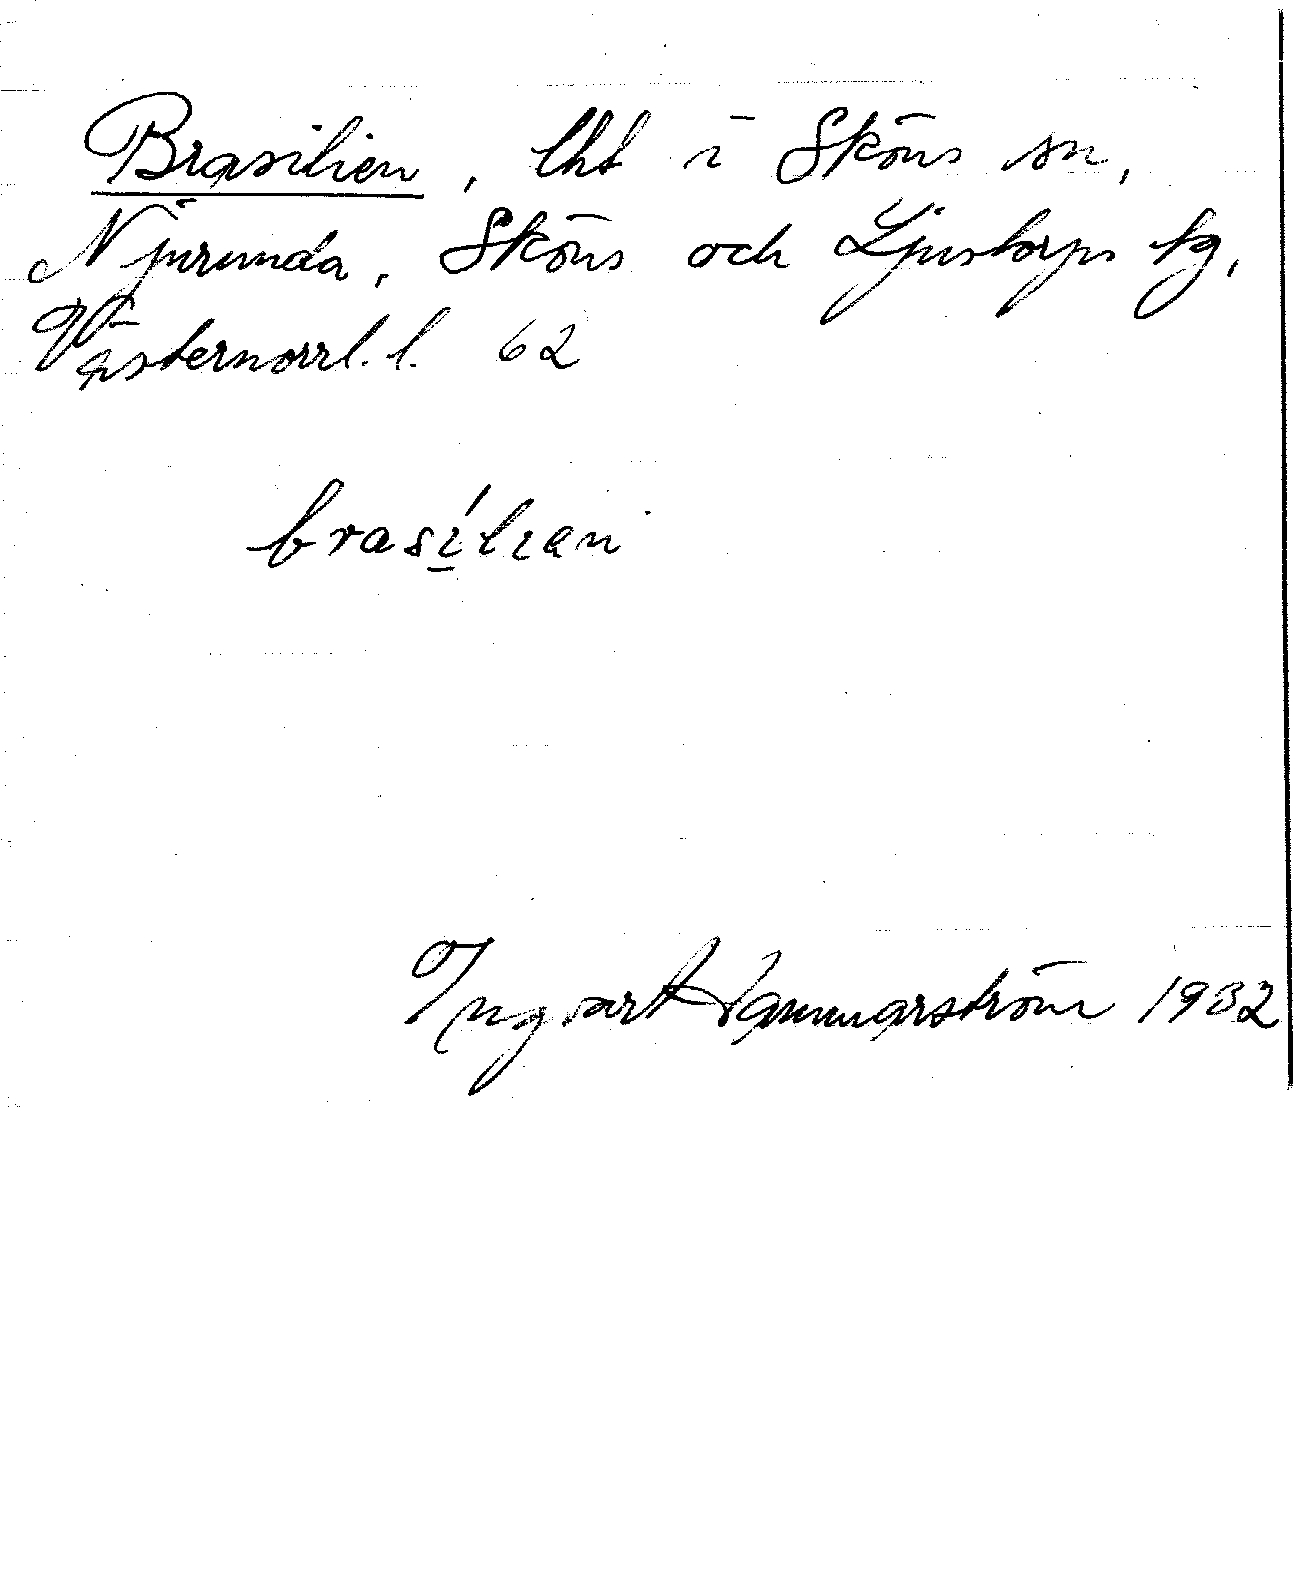 Brasilien, lht i Sköns sn,
Njurunda, Sköns och Ljustorps tg,
Västernorrl. l. 62
brasílien
Ingvart Hammarström 1932